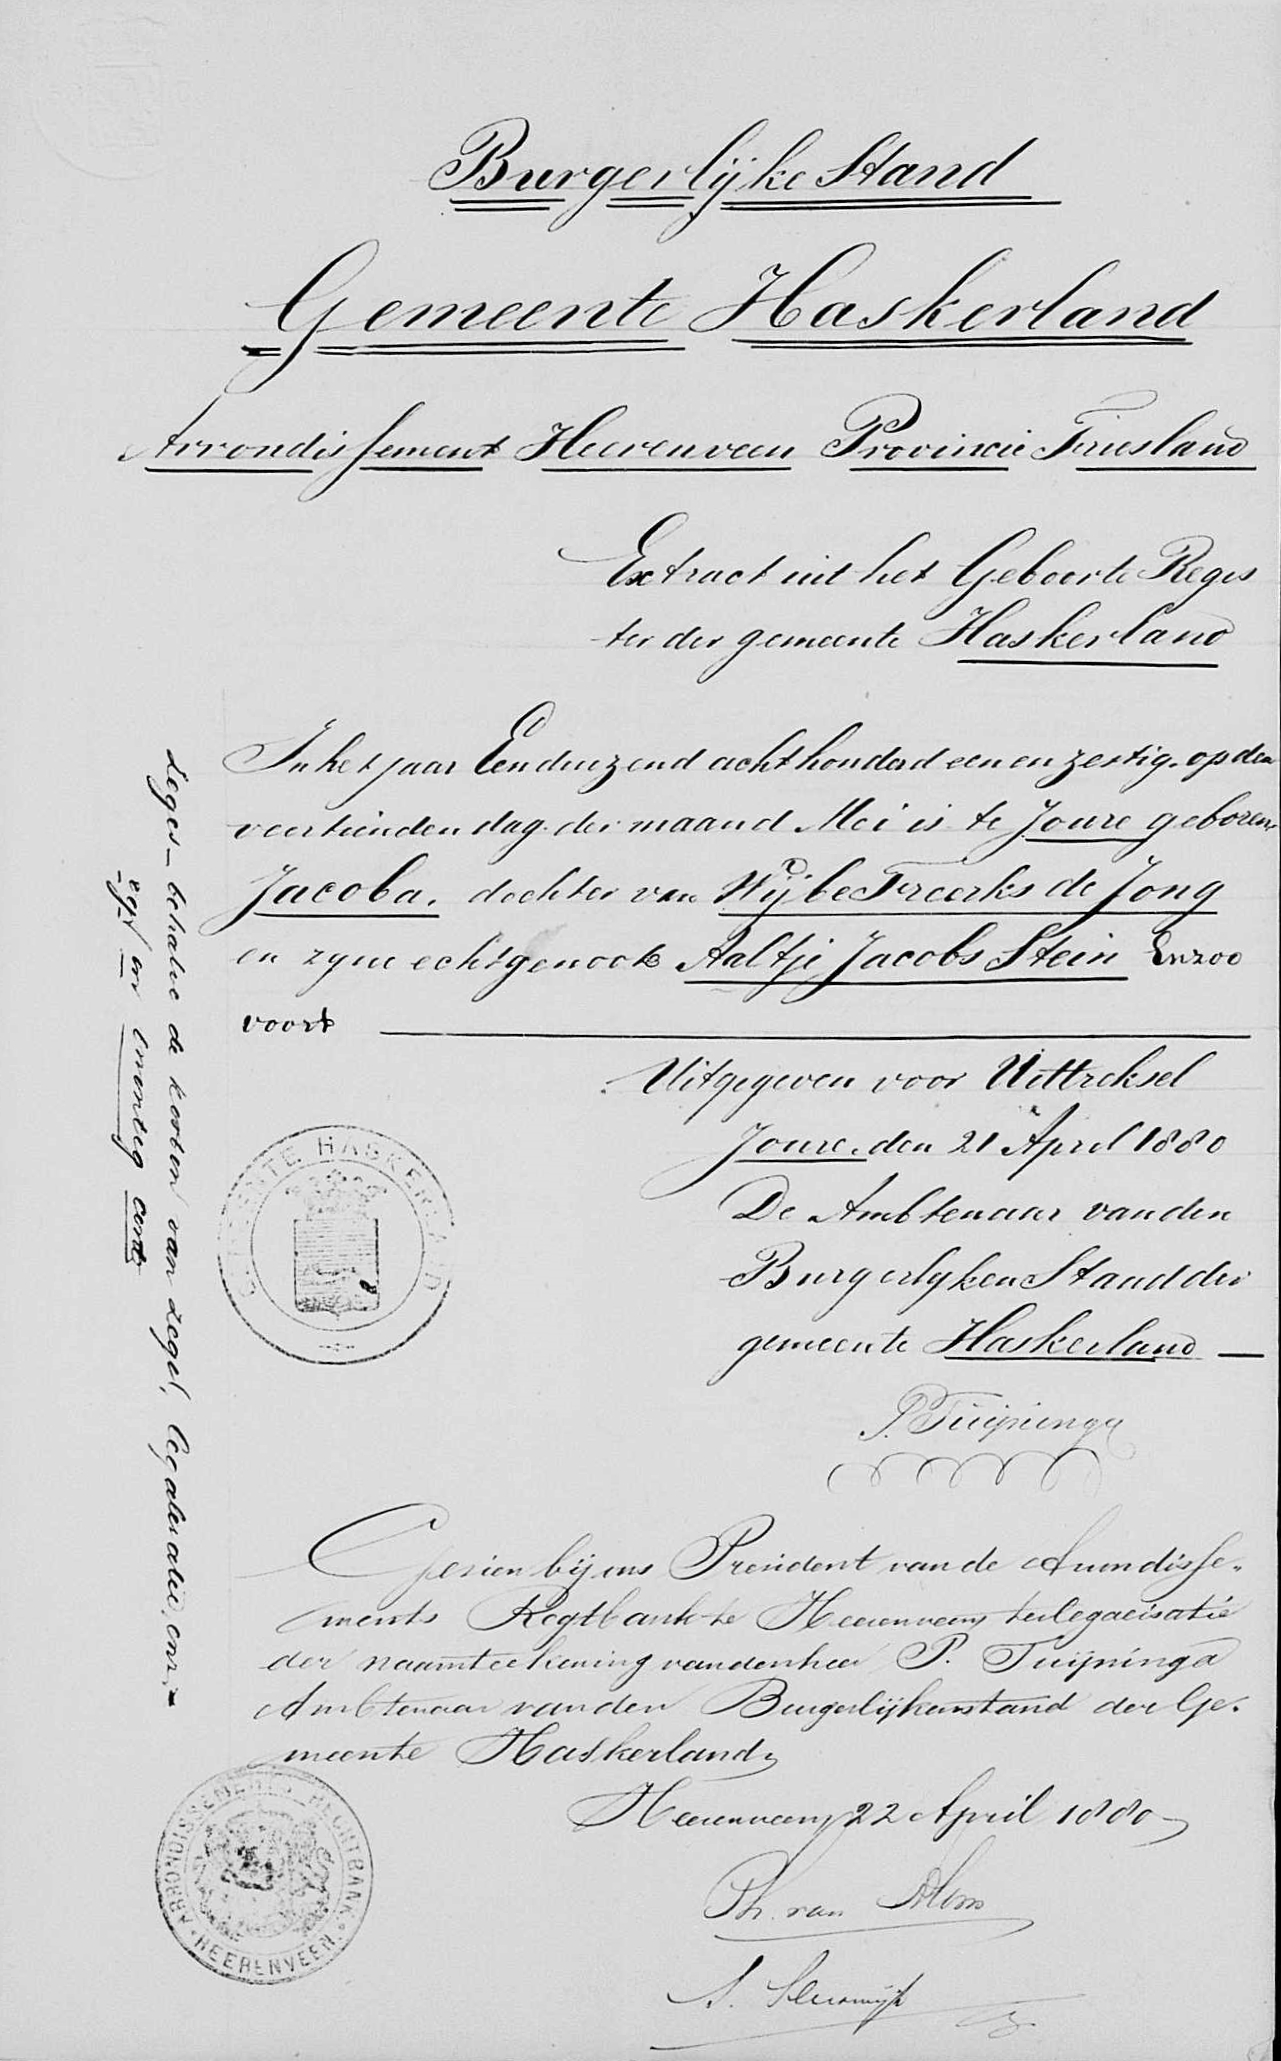 Burgerlijke Stand
Gemeente Haskerland
Arrondissement Heerenveen Provincie Friesland
Extract uit het Geboorte Regis
ter der gemeente Haskerland
In het jaar Eenduizend achthonderd een en zestig op den
veertienden dag der maand Mei is te Joure geboren,
Jacoba, dochter van Wijbe Freerks de Jong
en zyne echtgenoote Aaltje Jacobs Stein Enzoo
voort
Uitgegeven voor Uittreksel
Joure, den 21 April 1880
De Ambtenaar van den
Burgerlyken Stand der
gemeente Haskerland
P. Tuijninga
Leges behalve de kosten van zegel, legalisatie, enz.
en cents
GEMEENTE HASKERLAND
Gezien bij ons President van de Arrondisse-
ments Regtbank te Heerenveen ter legalisatie
der naamteekening van den heer P. Tuijninga
Ambtenaar van den Burgerlijkenstand der Ge-
meente Haskerland,
Heerenveen, 22 April 1880
ARRONDISSEMENTS RECHTBANK HEERENVEEN
Ph. van